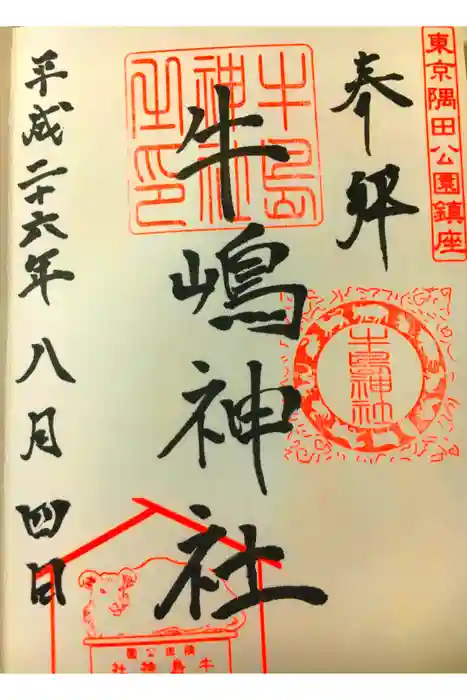 東京隅田公園鎮座
奉拝
牛嶋神社
平成二十六年八月四日
牛島
神社
之印
牛島神社
隅田公園
牛島神社